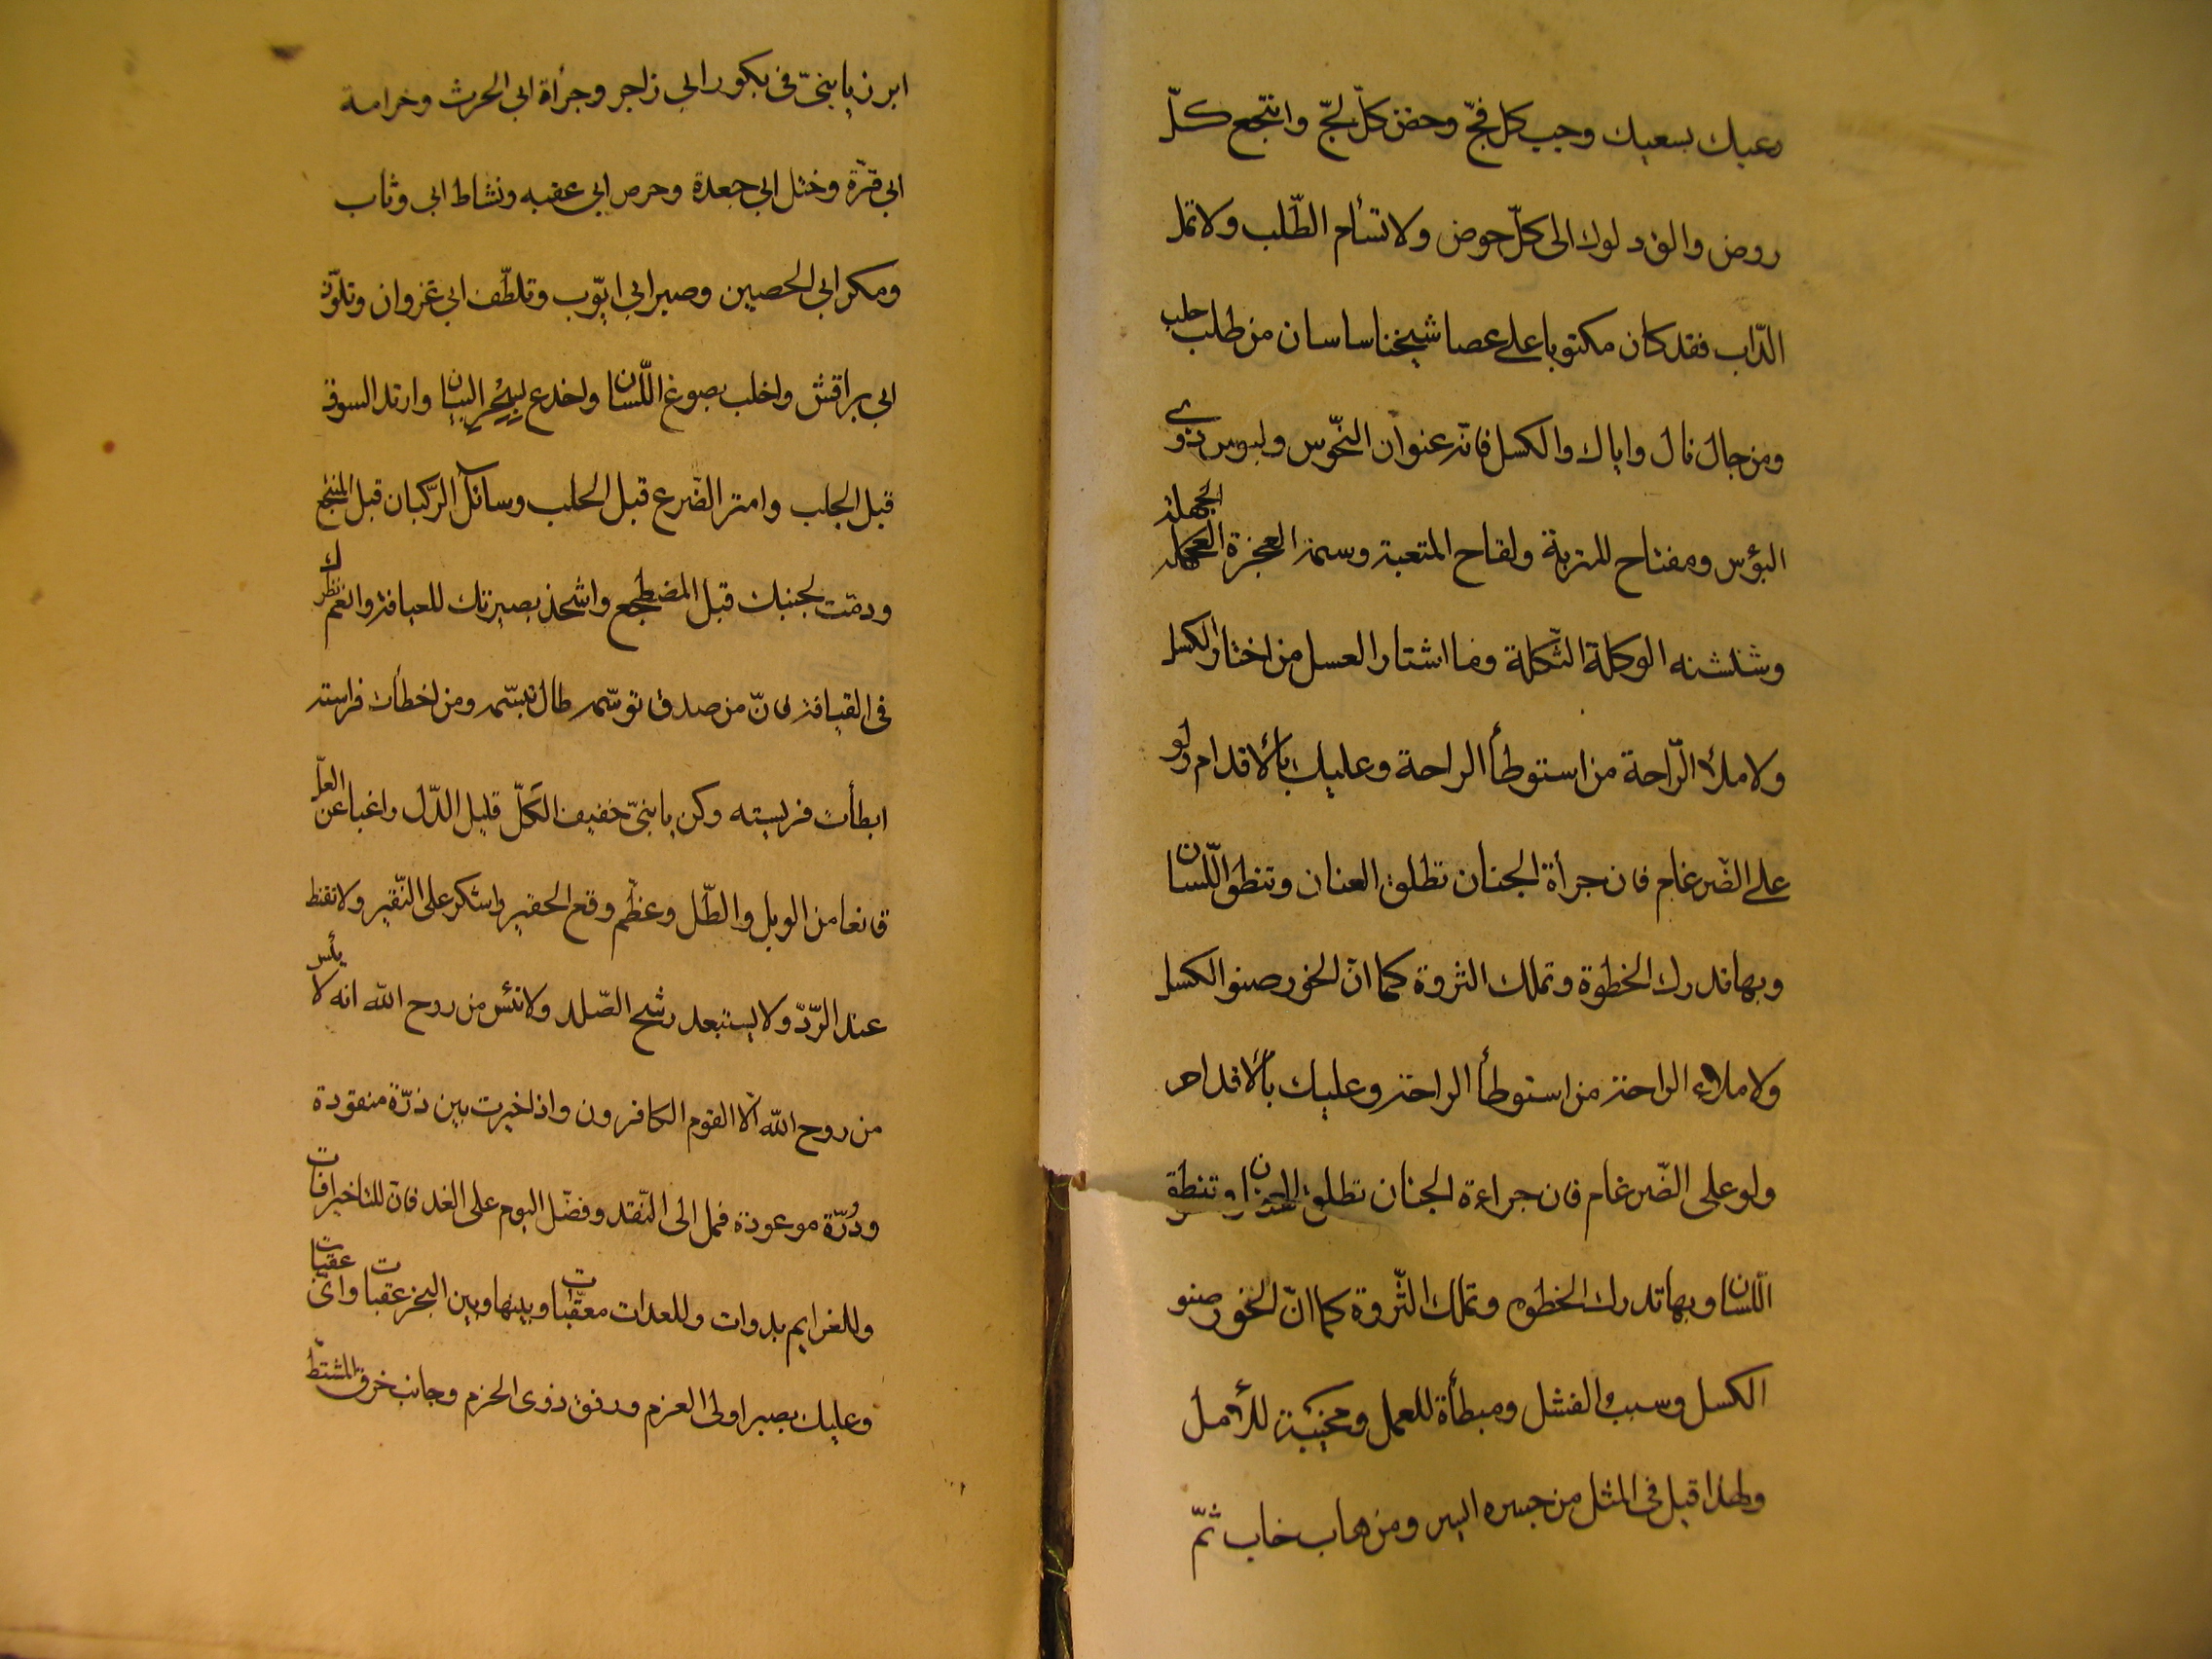 رعيك بسعيك وجب كل فجّ وخض كلّ لجّ وانتجع كلّ
روض والق دلوك الى كلّ حوض ولا تسأم الطّلب ولا تمل
الدّاب فقد كان مكتوبا على عصا شيخنا ساسان من طلب جلب
ومن جال نال واياك والكسل فانّه عنوان النحّوس ولبوس ذوى
البؤس ومفتاح المتربة ولقاح المتعبة وسمة العجزة الجهلة
وشنشنه الوكلة التّكلة وما اشتار العسل من اختار الكسل
ولا ملأ الرّاحة من استوطأ الراحة وعليك بالأقدام ولو
على الضّرغام فان جرأة الجنان تطلق العنان وتنطق اللّسان
وبها تدرك الخطوة وتملك الثروة كما انّ الخور صنو الكسل
ولا ملاء الراحة من استوطأ الراحة وعليك بالأقدام
ولو على الضّرغام فان جراءة الجنان تطلق العنان وتنطق
اللّسان وبها تدرك الخطوه وتملك الثّروة كما انّ الخور صنو
الكسل وسبب الفشل ومبطأة للعمل ومخيبة للأمل
ولهذا قيل فى المثل من جسر ايسر ومن هاب خاب ثمّ
ابرز يا بنىّ فى بكور ابى زاجر وجرأة ابى الحرث وخرامة
ابى قرّة وختل ابى جعدة وحرص ابى عقبه ونشاط ابى وثاب
ومكر ابى الحصين وصبر ابى ايّوب وتلطّف ابى غزوان وتلوّن
ابى براقش واخلب بصوغ اللّسان واخدع بسحر البيان وارتد السوق
قبل الجلب وامتر الضّرع قبل الحلب وسائل الرّكبان قبل المنتجع
ودمّث لجنبك قبل المضطجع واشحذ بصيرتك للعيافة وانعم نظرك
فى القيافة فانّ من صدق توسّمه طال تبسّمه ومن اخطأت فراسته
ابطأت فريسته وكن يا بنىّ خفيف الكلّ قليل الدّل واغبا عن العلّ
قانعا من الوبل والطّل وعظّم وقع الحقير واشكر على النّقير ولا تقنط
عند الرّدّ ولا يستبعد رشح الصّلد ولا تئس من روح الله انه لا يأس
من روح الله الّا القوم الكافرون واذا خيرت بين ذرّة منقودة
ودُرّة موعودة فمل الى النّقد وفضّل اليوم على الغد فانّ للتاخير افات
وللغرايم بدوات وللعدات معقّبات وبينها وبين النجز عقبات واىّ عقبات
وعليك بصبر اولى العزم ورفق ذوى الحزم وجانب خرق المشتطّ